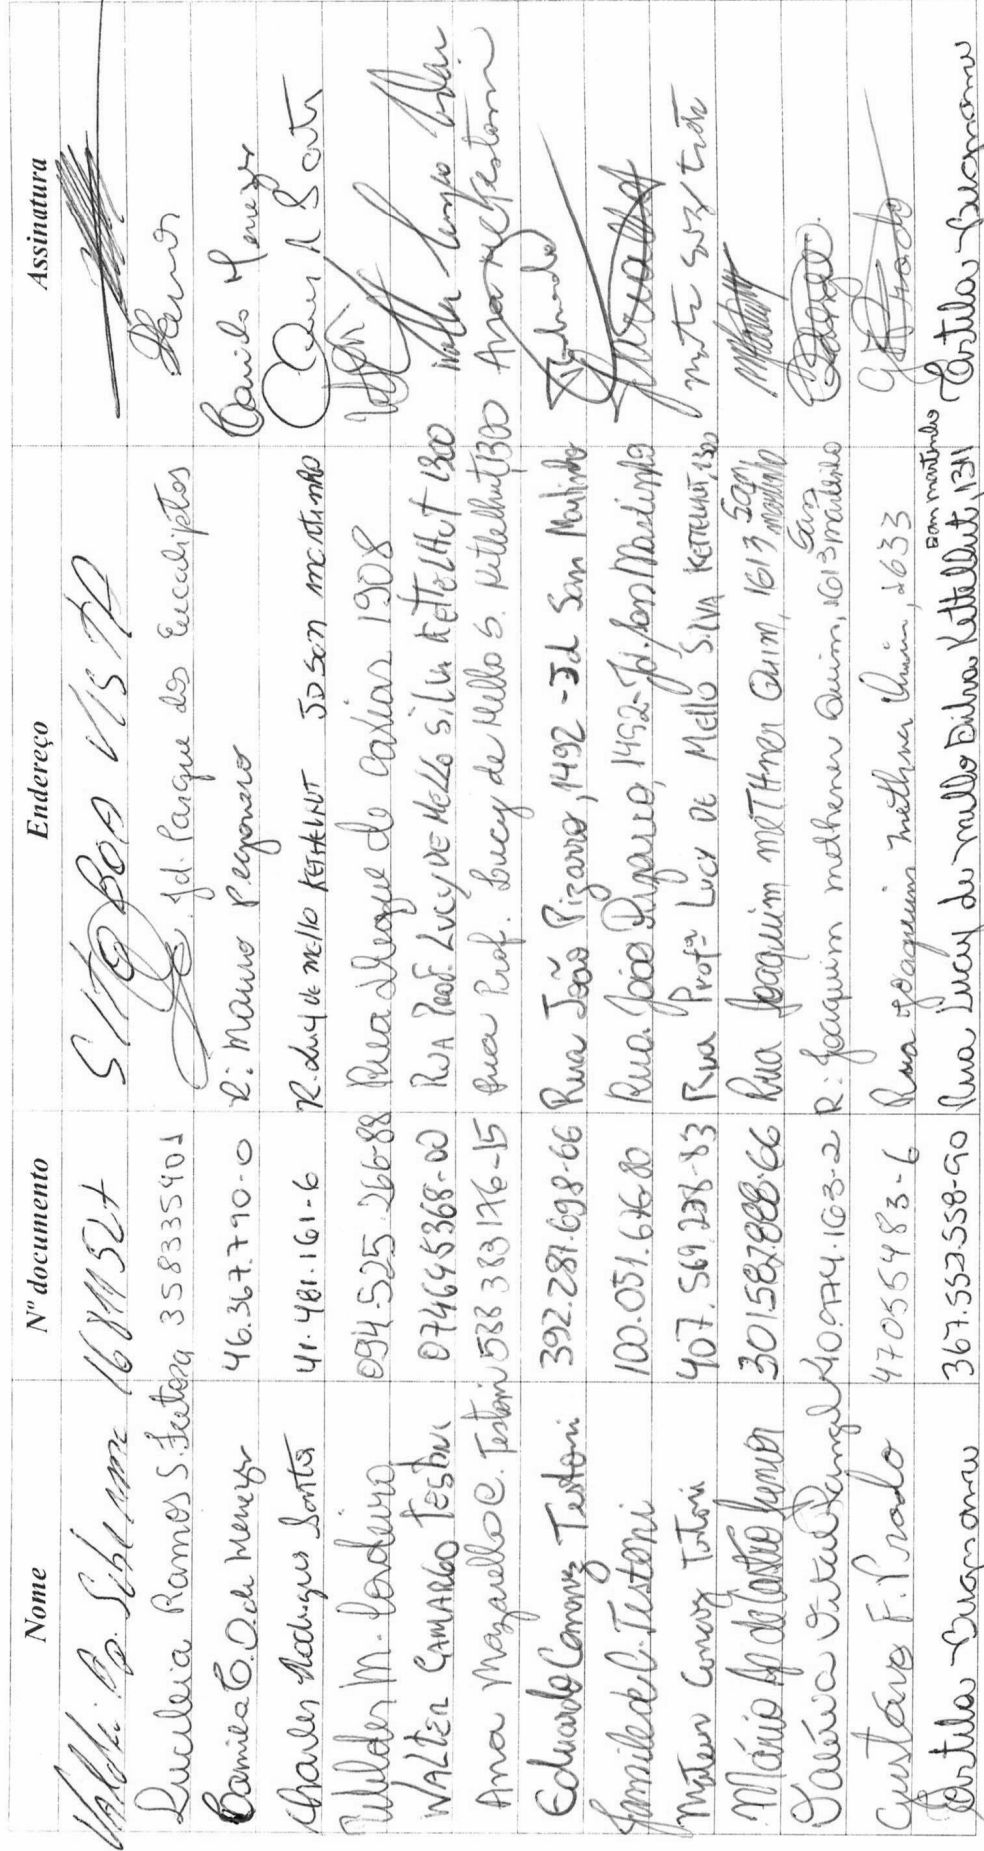 Nome Nº documento Endereço Assinatura
16811527 SITO BOA VISTA
Lucileia Ramos S. 358335401 Jd. Parque dos Eucaliptos
Camila C. O. de Menezes 46.367.790-0 R: Mauro Camila Menezes
Charles Rodrigues Santos 41.481.161-6 R. Lucy de mello KETTELHUT JD San martinho
M. Cordeiro 094.525.266-88 Rua Duque de Caxias 1908
WALTER CAMARGO TESTONI 0746645368-00 RUA PROF. LUCY DE MELLO SILVA KETTELHUT 1300
Ana Mazarello C. Testoni 588 383 176-15 Rua Prof. Lucy de Mello S. Kettelhut 1300 Ana M C Testoni
Eduardo Camargo Testoni 392.281.698-66 Rua João Pizarro, 1492 - Jd San Martinho Eduardo
C. Testoni 100.051.676-80 Rua João Pizarro, 1492 - Jd. San Martinho
Mateus Camargo Testoni 407.569.278-83 Rua Profª Lucy DE Mello SILVA KETTELHUT, 1300
Mário Ap. de Castro Junior 301582888-66 Rua Joaquim METHNER QUIM, 1613 San martinho
Valéria Rangel 40.974.163-2 R: Joaquim methener Quim, 1613 San martinho
Gustavo F. Prado 47056483-6 Rua Joaquim methner Quim, 1633 G F Prado
Buonomo 367.552.558-90 Rua Lucy de mello Silva Kettelhut, 1311 san martinho Buonomo